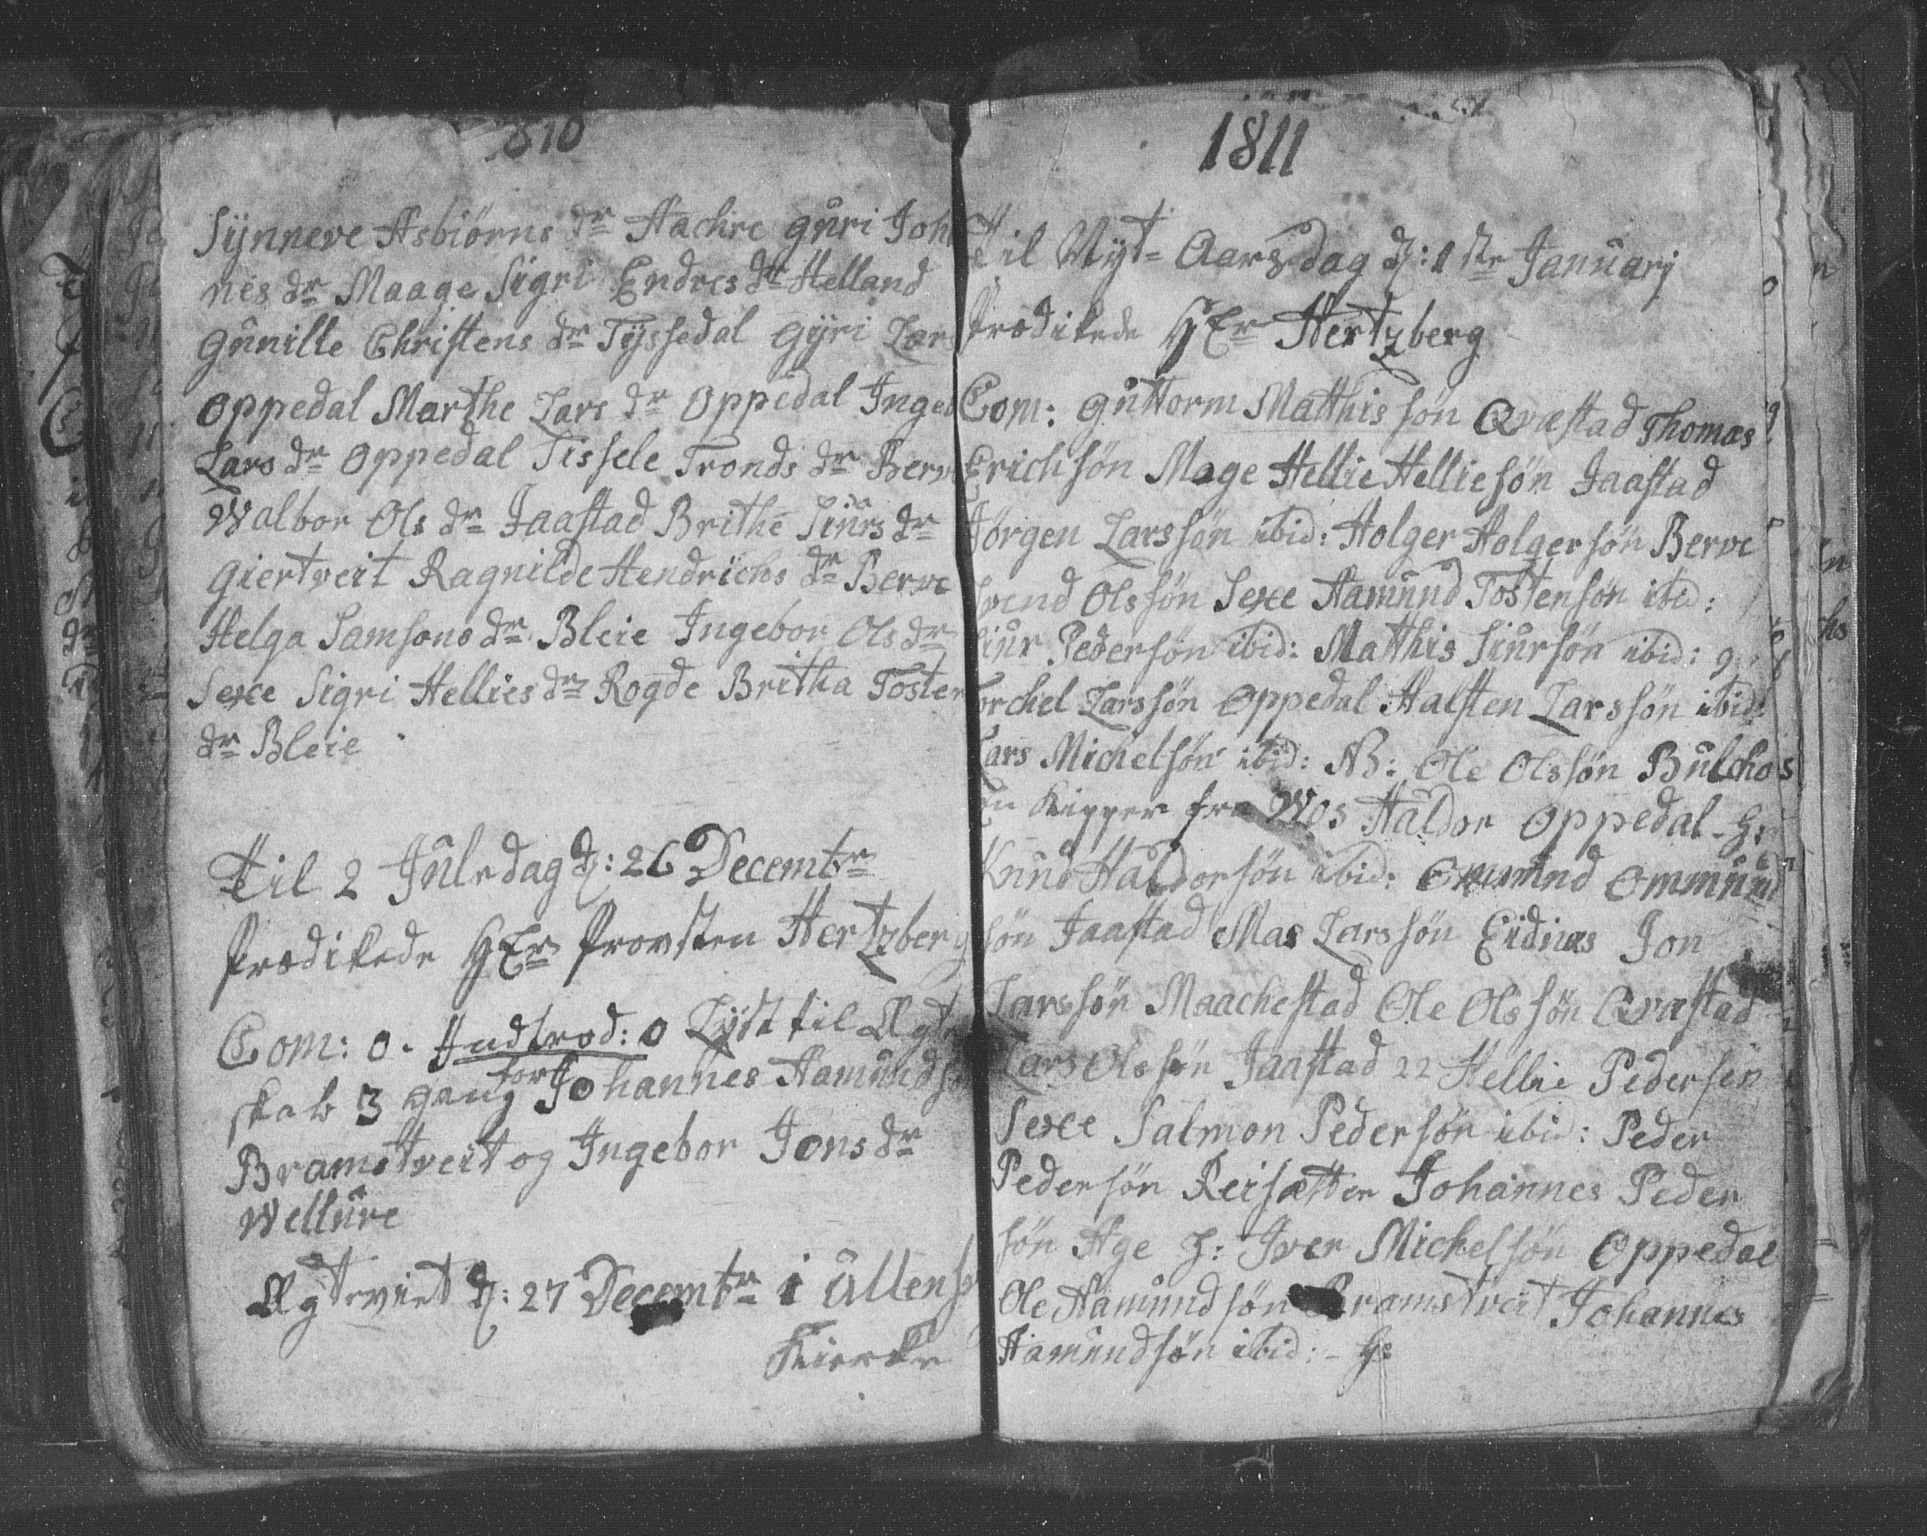 810
Sÿnneve Asbiørns dr Aachre guri Joh
nes dr Maage Sigri Endres dr Helland
gunille Christens dr Tÿssedal gÿri Lars
oppedal Marthe Lars dr oppedal Ingeb
Lars dr oppedal Sissele Tronds dr Berve
Walbor Ols dr Jaastad Brithe Siurs dr
giertveit Ragnilde Hendrichs dr Berve
Helga Samsons dr Bleie Ingebor Ols dr
Sexe Sigri Hellies dr Rogde Britha Tosten
dr Bleie
Til 2 Juledag d: 26 Decembr
Prædikede HEr Provsten Hertzberg
Com: 0. Indtrod: 0 Lÿst til Ægte
skab 3 gang for Johannes Aamundsø
Bramstveit og Ingebor Jons dr
Wellure
Ægteviet d: 27 Decembr i Ullens
Kircke
1811
Til Nyt= Aarsdag d: 1ste Januarj
Prædikede HEr Hertzberg
Com: guttorm Matthissøn Qvæstad Thomas
Erichsøn Mage Hellie Helliesøn Jaastad
Jørgen Larssøn ibid: Holger Holgersøn Berve
Svend Olssøn Sexe Aamund Tostensøn ibid:
Siur Pedersøn ibid: Matthis Siursøn ibid:
Torchel Larssøn oppedal Halsten Larssøn ibid:
Lars Michelsøn ibid: NB: Ole Olssøn Bulchos
En Kipper fra Wos Haldor oppedal - H:
Knud Haldorsøn ibid: Ommund Ommund
søn Jaastad Mas Larssøn Eidnæs Jon
Larssøn Maachestad Ole Olssøn Qvæstad
Lars Olssøn Jaastad 22 Hellie Pedersøn
Sexe Salmon Pedersøn ibid: Peder
Pedersøn Reisætter Johannes Peder
søn Age H: Iver Michelsøn oppedal
Ole Aamundsøn Bramstveit Johannes
Aamundsøn ibid: - H: